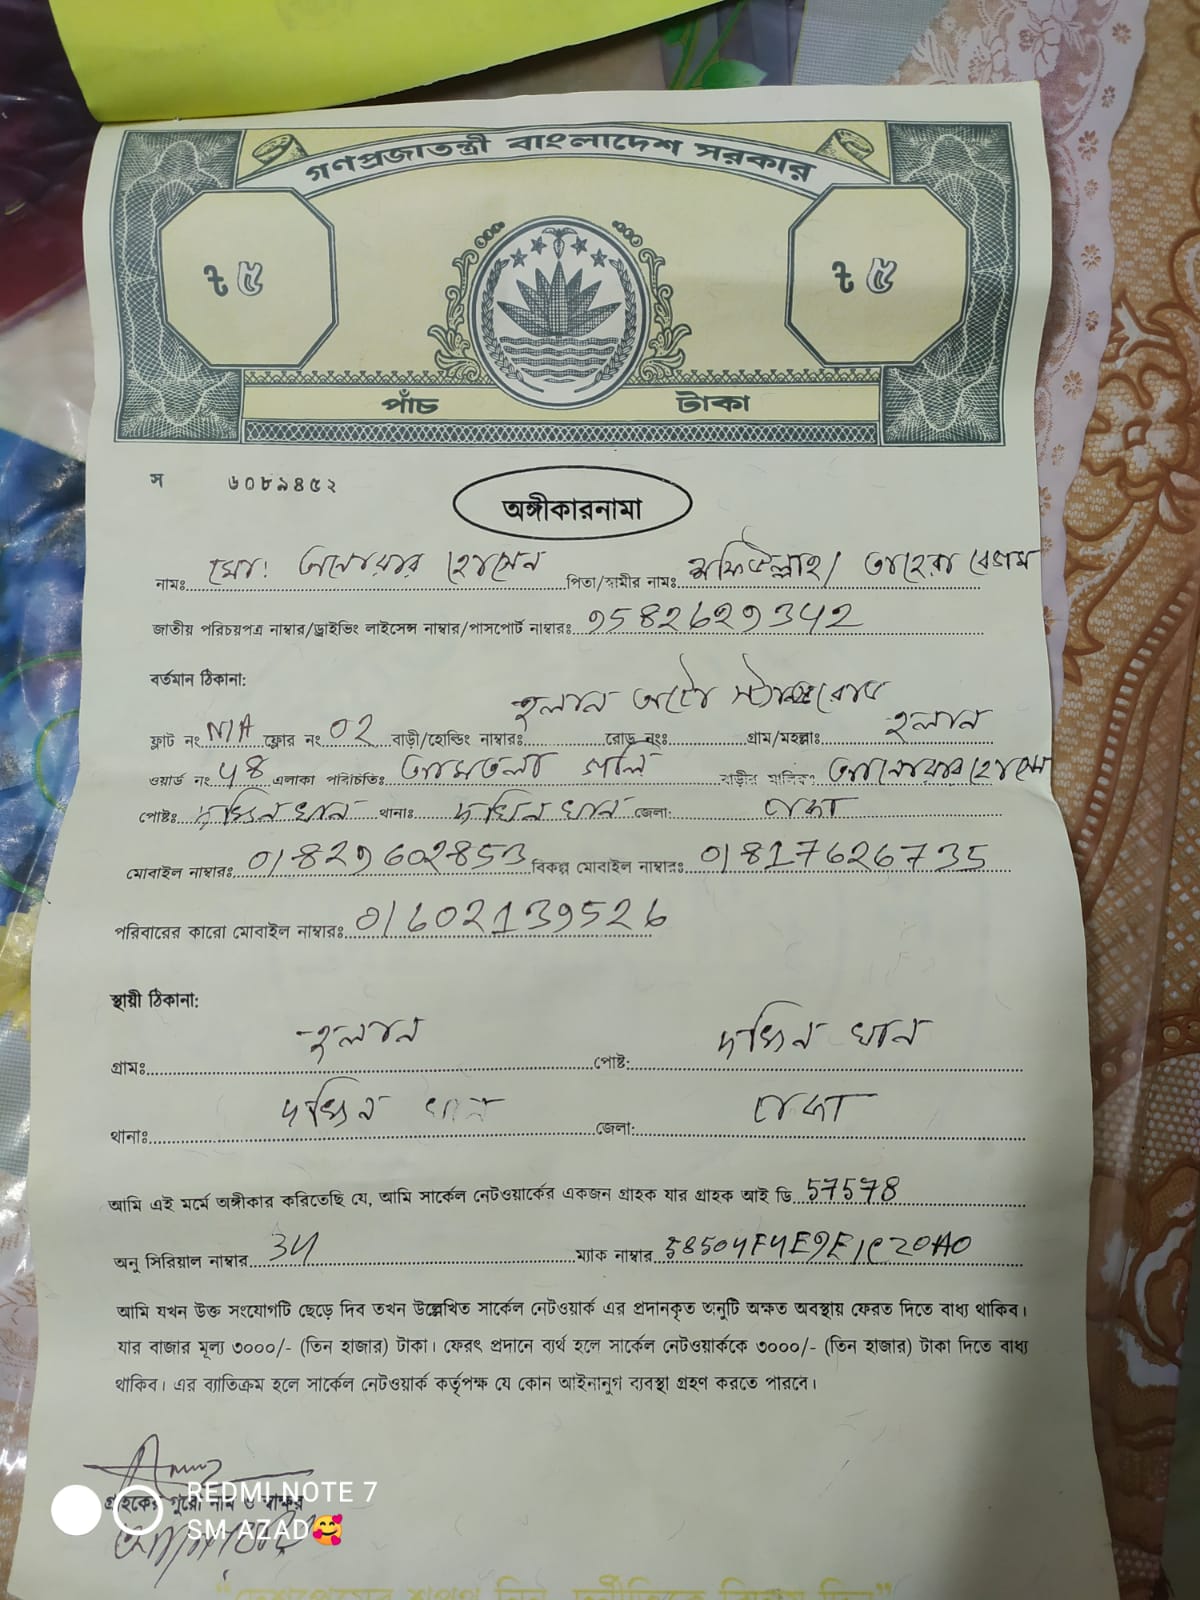 গণপ্রজাতন্ত্রী বাংলাদেশ সরকার
৳ ৫ ৳ ৫
পাঁচ টাকা
স ৬০৮৯৪৫২
অঙ্গীকারনামা
নামঃ মোঃ আনোয়ার হোসেন পিতা/স্বামীর নামঃ শফিউল্লাহ/ তাহেরা বেগম
জাতীয় পরিচয়পত্র নাম্বার/ড্রাইভিং লাইসেন্স নাম্বার/পাসপোর্ট নাম্বারঃ 9582629342
বর্তমান ঠিকানা:
ফ্লাট নং N/A ফ্লোর নং 02 বাড়ী/হোল্ডিং নাম্বারঃ হলান অটো রোড নংঃ গ্রাম/মহল্লাঃ হলান
ওয়ার্ড নং 48 এলাকা পরিচিতিঃ আমতলা গলি বাড়ীর মালিকঃ আনোয়ার হোসেন
পোষ্টঃ দক্ষিন খান থানাঃ দক্ষিন খান জেলা: ঢাকা
মোবাইল নাম্বারঃ 01829602853 বিকল্প মোবাইল নাম্বারঃ 01817626735
পরিবারের কারো মোবাইল নাম্বারঃ 01602139526
স্থায়ী ঠিকানা:
গ্রামঃ হলান পোষ্ট: দক্ষিন খান
থানাঃ দক্ষিন খান জেলা: ঢাকা
আমি এই মর্মে অঙ্গীকার করিতেছি যে, আমি সার্কেল নেটওয়ার্কের একজন গ্রাহক যার গ্রাহক আই ডি 57578
অনু সিরিয়াল নাম্বার 34 ম্যাক নাম্বার
আমি যখন উক্ত সংযোগটি ছেড়ে দিব তখন উল্লেখিত সার্কেল নেটওয়ার্ক এর প্রদানকৃত অনুটি অক্ষত অবস্থায় ফেরত দিতে বাধ্য থাকিব।
যার বাজার মূল্য ৩০০০/- (তিন হাজার) টাকা। ফেরৎ প্রদানে ব্যর্থ হলে সার্কেল নেটওয়ার্ককে ৩০০০/- (তিন হাজার) টাকা দিতে বাধ্য
থাকিব। এর ব্যতিক্রম হলে সার্কেল নেটওয়ার্ক কর্তৃপক্ষ যে কোন আইনানুগ ব্যবস্থা গ্রহণ করতে পারবে।
গ্রাহকের পুরো নাম ও স্বাক্ষর
REDMI NOTE 7
SM AZAD🥰